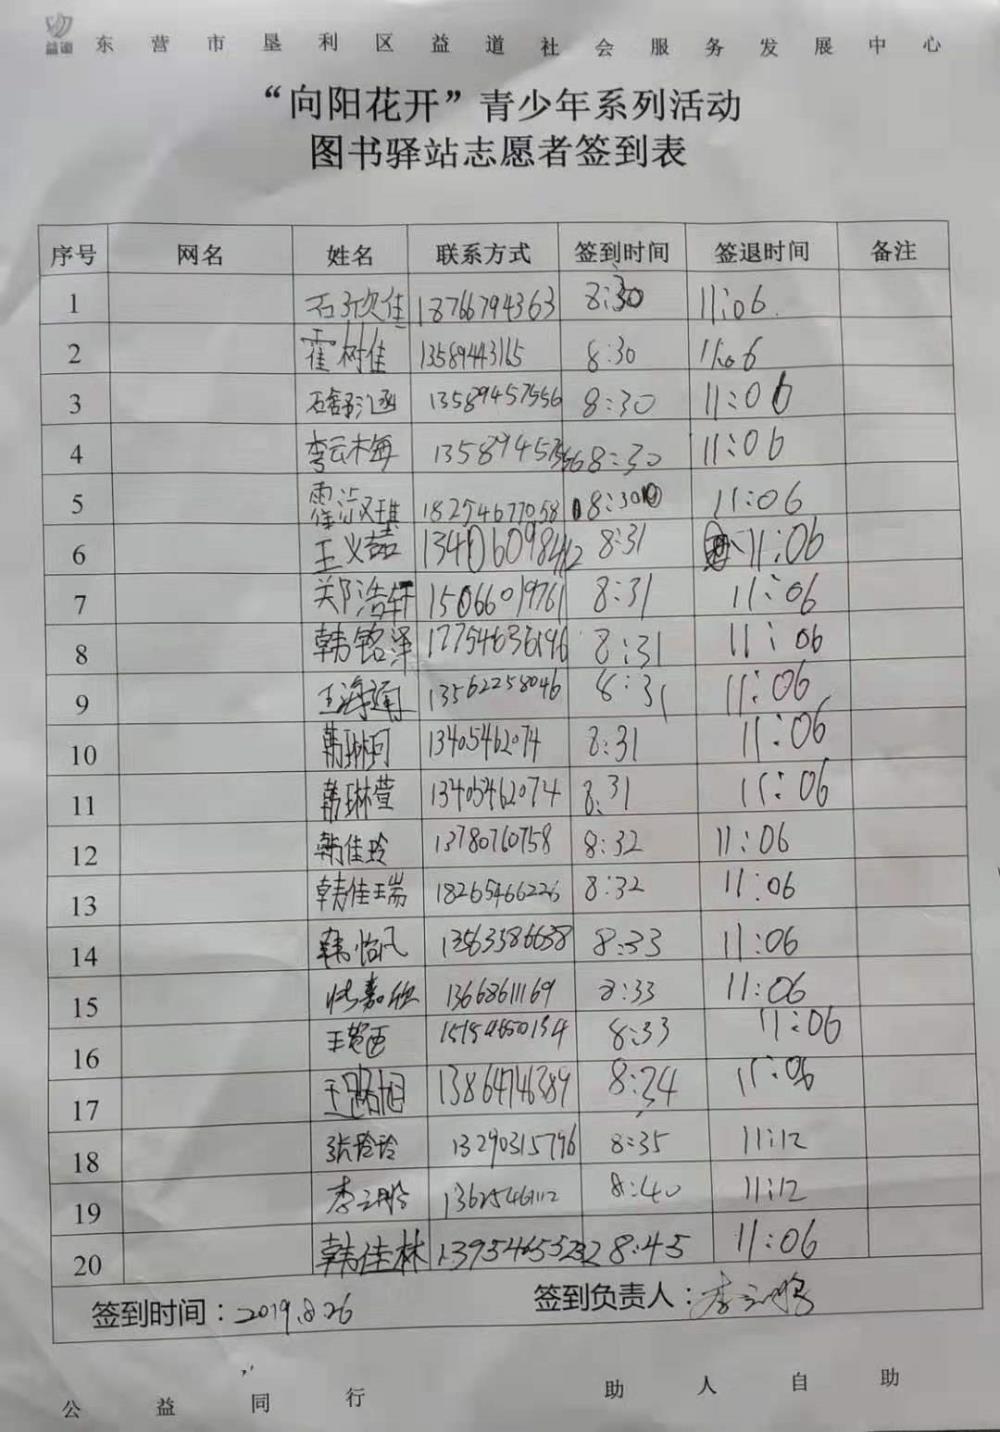 益道 东营市垦利区益道社会服务发展中心
“向阳花开”青少年系列活动
图书驿站志愿者签到表
序号 网名 姓名 联系方式 签到时间 签退时间 备注
1 石欣佳 18766794363 8:30 11:06
2 霍树佳 13589443165 8:30 11:06
3 石舒涵 13589457556 8:30 11:06
4 李云梅 8:30 11:06
5 霍淑琪 18254677058 8:30 11:06
6 王义喆 8:31 11:06
7 郑浩轩 15066019761 8:31 11:06
8 韩铭泽 17754636196 8:31 11:06
9 王海 13562258046 8:31 11:06
10 韩琳珂 13405462074 8:31 11:06
11 韩琳萱 13405462074 8:31 11:06
12 韩佳玲 13780760758 8:32 11:06
13 韩佳瑞 18265466226 8:32 11:06
14 韩怡凡 13563586638 8:33 11:06
15 嘉欣 13668611169 8:33 11:06
16 王 15154650134 8:33 11:06
17 王 旭 13864746389 8:34 11:06
18 张玲玲 13290315796 8:35 11:12
19 李 8:40 11:12
20 韩佳林 8:45 11:06
签到时间：2019.8.26 签到负责人：
公益同行 助人自助